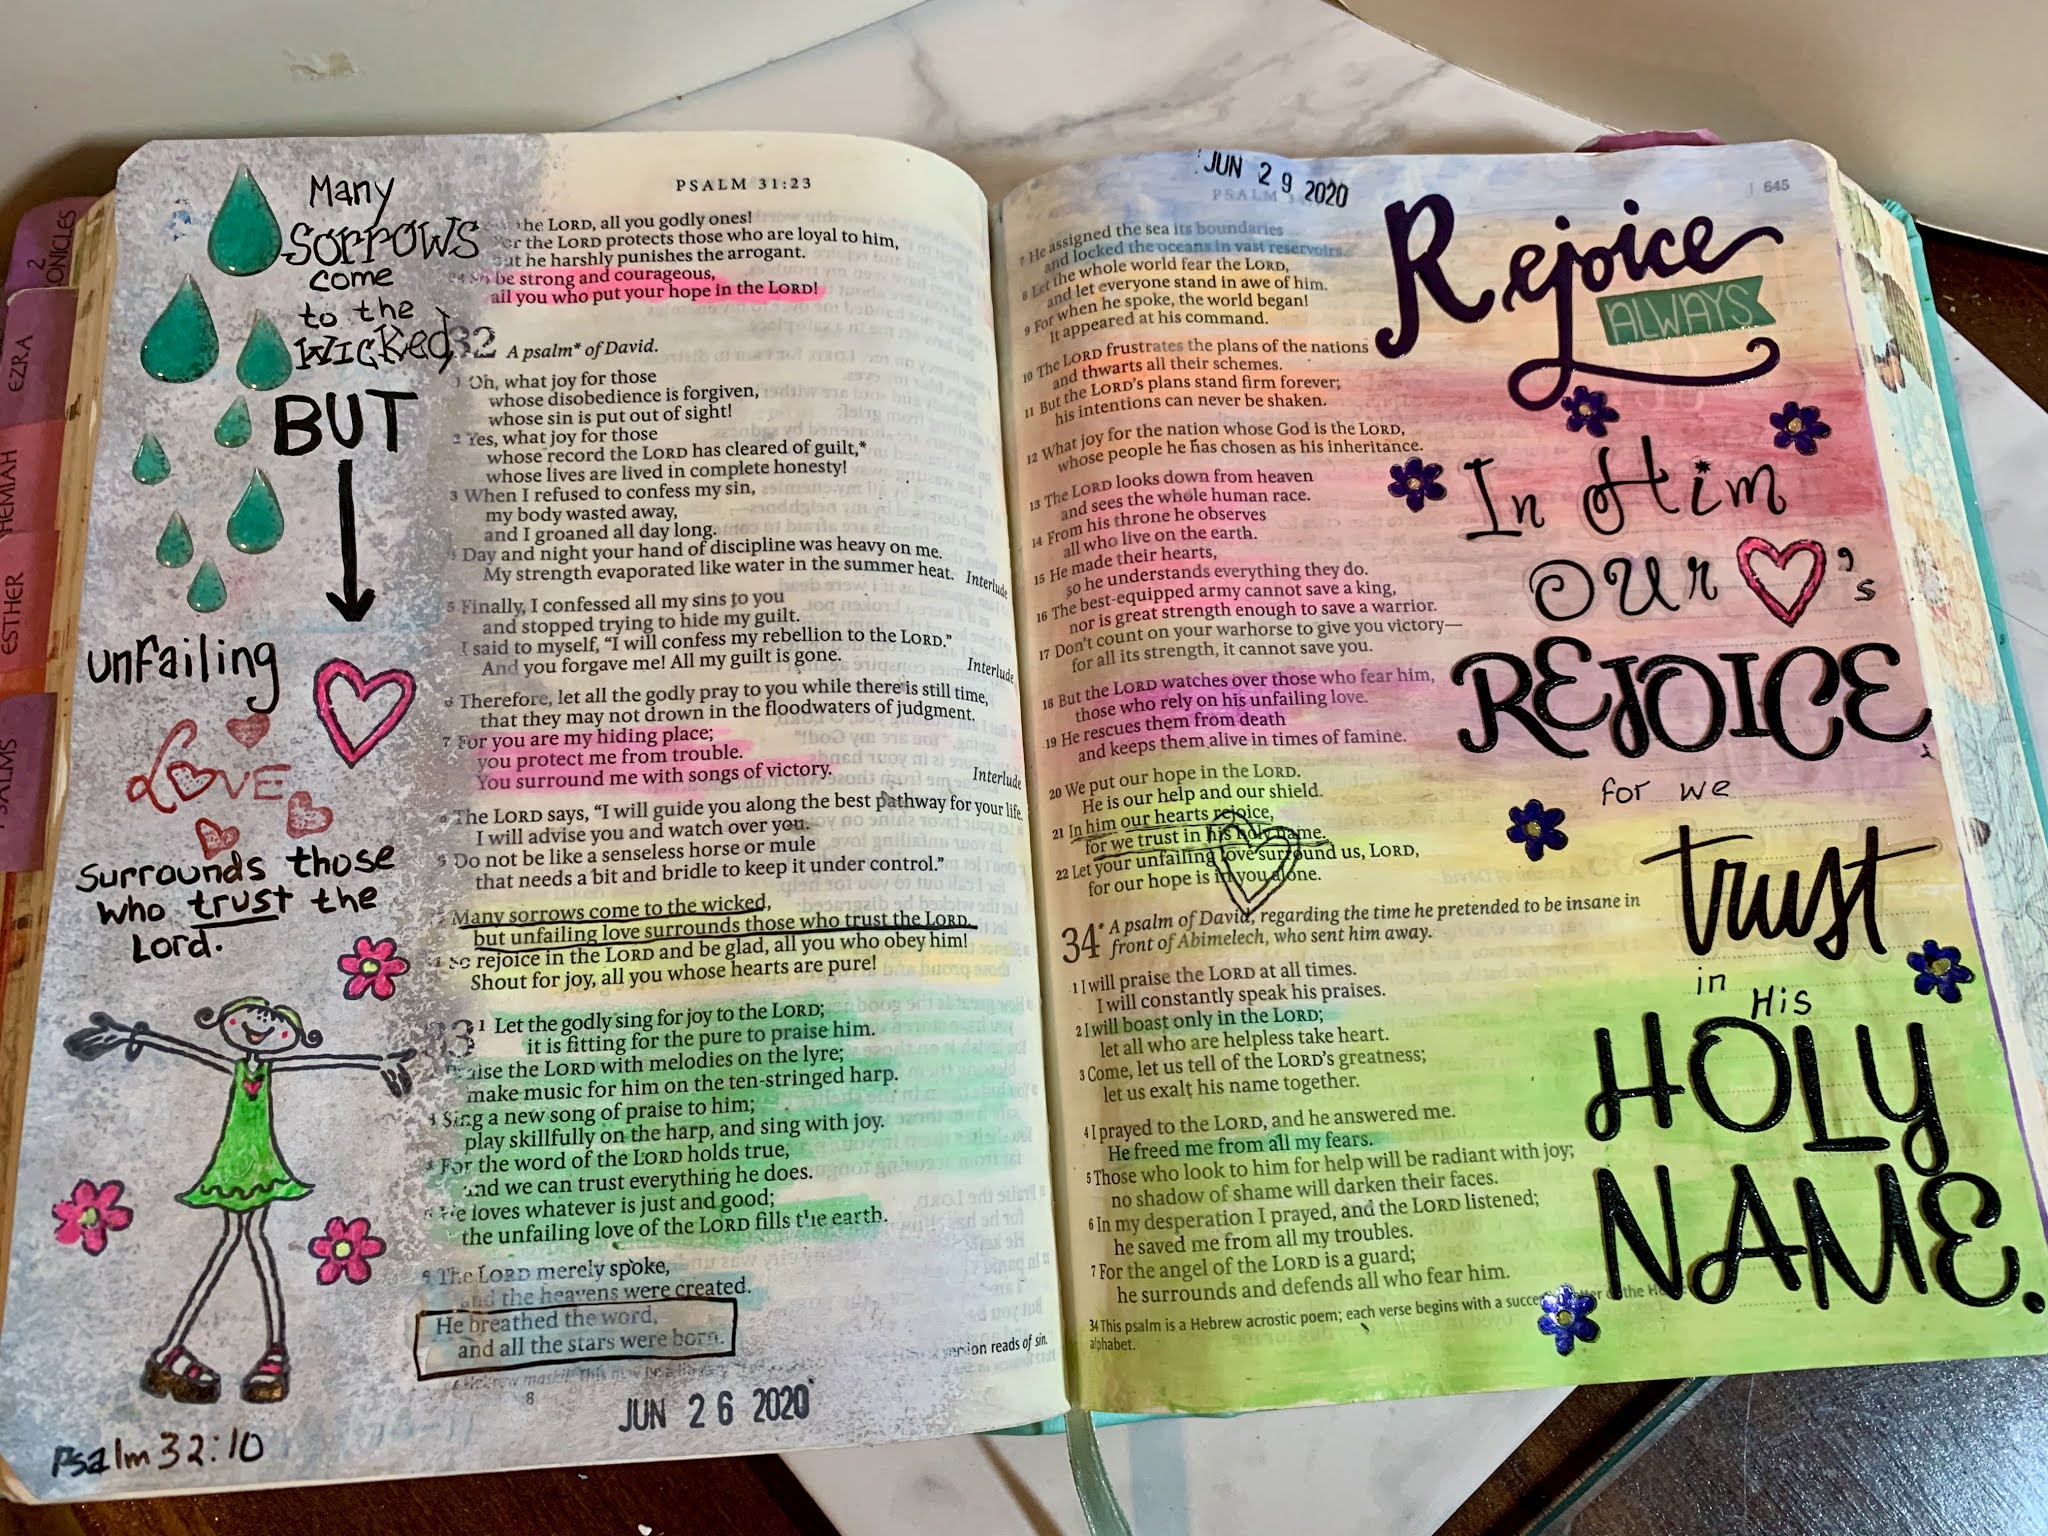 2
ONICLES
EZRA
HEMIAH
ESTHER
PSALMS
Many
SORROWS
come
to the
WICKED,
BUT
unfailing
LOVE
Surrounds those
who trust the
Lord.
Psalm 32:10
PSALM 31:23
the LORD, all you godly ones!
the LORD protects those who are loyal to him,
but he harshly punishes the arrogant.
24 So be strong and courageous,
all you who put your hope in the LORD!
32 A psalm* of David.
1 Oh, what joy for those
whose disobedience is forgiven,
whose sin is put out of sight!
2 Yes, what joy for those
whose record the LORD has cleared of guilt,*
whose lives are lived in complete honesty!
3 When I refused to confess my sin,
my body wasted away,
and I groaned all day long.
4 Day and night your hand of discipline was heavy on me.
My strength evaporated like water in the summer heat. Interlude
5 Finally, I confessed all my sins to you
and stopped trying to hide my guilt.
I said to myself, “I will confess my rebellion to the LORD.”
And you forgave me! All my guilt is gone. Interlude
6 Therefore, let all the godly pray to you while there is still time,
that they may not drown in the floodwaters of judgment.
7 For you are my hiding place;
you protect me from trouble.
You surround me with songs of victory. Interlude
8 The LORD says, “I will guide you along the best pathway for your life.
I will advise you and watch over you.
9 Do not be like a senseless horse or mule
that needs a bit and bridle to keep it under control.”
Many sorrows come to the wicked,
but unfailing love surrounds those who trust the LORD.
11 So rejoice in the LORD and be glad, all you who obey him!
Shout for joy, all you whose hearts are pure!
33 1 Let the godly sing for joy to the LORD;
it is fitting for the pure to praise him.
Praise the LORD with melodies on the lyre;
make music for him on the ten-stringed harp.
3 Sing a new song of praise to him;
play skillfully on the harp, and sing with joy.
4 For the word of the LORD holds true,
and we can trust everything he does.
5 He loves whatever is just and good;
the unfailing love of the LORD fills the earth.
6 The LORD merely spoke,
and the heavens were created.
He breathed the word,
and all the stars were born.
version reads of sin.
8
JUN 26 2020
JUN 29 2020
PSALM
645
7 He assigned the sea its boundaries
and locked the oceans in vast reservoirs.
8 Let the whole world fear the LORD,
and let everyone stand in awe of him.
9 For when he spoke, the world began!
It appeared at his command.
10 The LORD frustrates the plans of the nations
and thwarts all their schemes.
11 But the LORD’s plans stand firm forever;
his intentions can never be shaken.
12 What joy for the nation whose God is the LORD,
whose people he has chosen as his inheritance.
13 The LORD looks down from heaven
and sees the whole human race.
14 From his throne he observes
all who live on the earth.
15 He made their hearts,
so he understands everything they do.
16 The best-equipped army cannot save a king,
nor is great strength enough to save a warrior.
17 Don’t count on your warhorse to give you victory—
for all its strength, it cannot save you.
18 But the LORD watches over those who fear him,
those who rely on his unfailing love.
19 He rescues them from death
and keeps them alive in times of famine.
20 We put our hope in the LORD.
He is our help and our shield.
21 In him our hearts rejoice,
for we trust in his holy name.
22 Let your unfailing love surround us, LORD,
for our hope is in you alone.
34* A psalm of David, regarding the time he pretended to be insane in
front of Abimelech, who sent him away.
1 I will praise the LORD at all times.
I will constantly speak his praises.
2 I will boast only in the LORD;
let all who are helpless take heart.
3 Come, let us tell of the LORD’s greatness;
let us exalt his name together.
4 I prayed to the LORD, and he answered me.
He freed me from all my fears.
5 Those who look to him for help will be radiant with joy;
no shadow of shame will darken their faces.
6 In my desperation I prayed, and the LORD listened;
he saved me from all my troubles.
7 For the angel of the LORD is a guard;
he surrounds and defends all who fear him.
34 This psalm is a Hebrew acrostic poem; each verse begins with a of the
alphabet.
Rejoice
ALWAYS
In Him
our 's
REJOICE
for we
trust
in
His
HOLY
NAME.